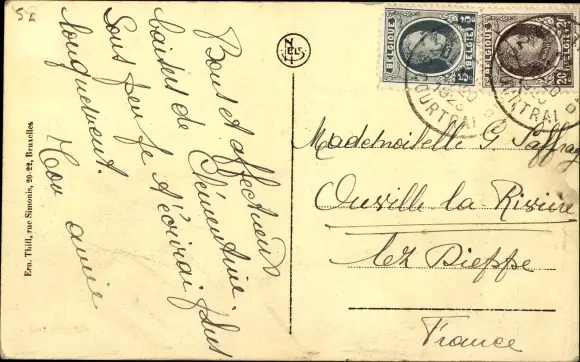 Bons et affectueux
baisers de Clémentine.
Sous peu je t'écrirai plus
longuement.
Ton amie
Ern. Thill, rue Simonis, 20-22, Bruxelles
NELS
BELGIQUE
5c
BELGIË
BELGIQUE
20
BELGIË
COURTRAI
COURTRAI
Mademoiselle G. Saffray
Ouville-la-Rivière
lez Dieppe
France